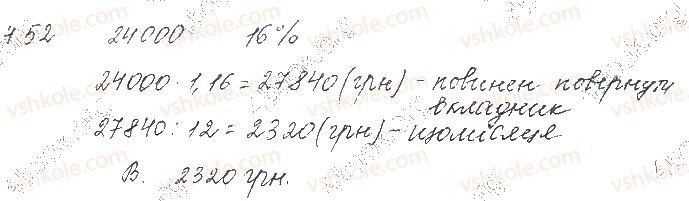 752 24000 16%
24000 · 1,16 = 27840 (грн) - повинен повернути
вкладник
27840 : 12 = 2320 (грн) - щомісяця
В. 2320 грн.